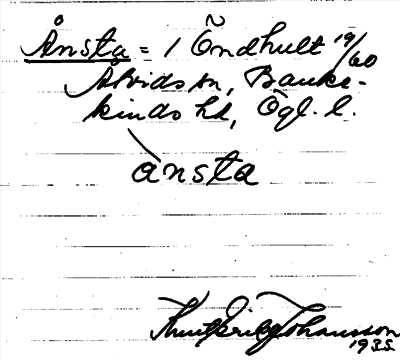 Ånsta = 1 Öndhult 19/60
Åtvids sn, Banke-
kinds hd, Ögl. l.
ånsta
Knut Erik Johansson
1935